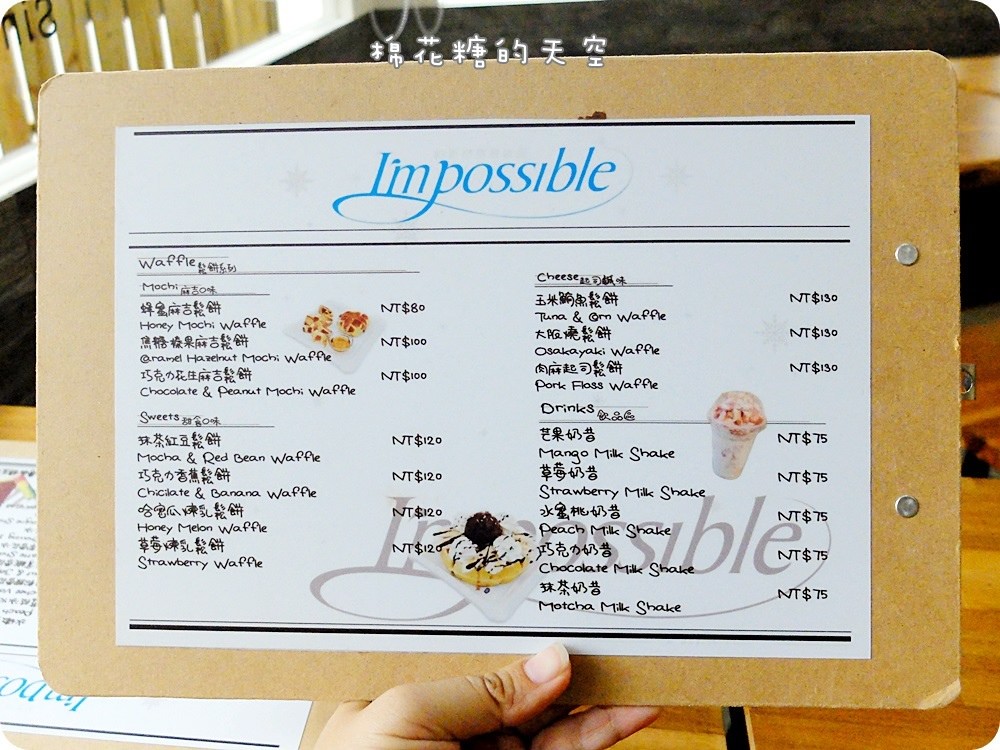 棉花糖的天空
I'mpossible
Waffle 鬆餅系列
Mochi 麻吉口味
蜂蜜麻吉鬆餅 NT$80
Honey Mochi Waffle
焦糖榛果麻吉鬆餅 NT$100
Caramel Hazelnut Mochi Waffle
巧克力花生麻吉鬆餅 NT$100
Chocolate & Peanut Mochi Waffle
Sweets 甜食口味
抹茶紅豆鬆餅 NT$120
Mocha & Red Bean Waffle
巧克力香蕉鬆餅 NT$120
Chicilate & Banana Waffle
哈密瓜煉乳鬆餅 NT$120
Honey Melon Waffle
草莓煉乳鬆餅 NT$120
Strawberry Waffle
Cheese 起司鹹味
玉米鮪魚鬆餅 NT$130
Tuna & Corn Waffle
大阪燒鬆餅 NT$130
Osakayaki Waffle
肉麻起司鬆餅 NT$130
Pork Floss Waffle
Drinks 飲品區
芒果奶昔 NT$75
Mango Milk Shake
草莓奶昔 NT$75
Strawberry Milk Shake
水蜜桃奶昔 NT$75
Peach Milk Shake
巧克力奶昔 NT$75
Chocolate Milk Shake
抹茶奶昔 NT$75
Motcha Milk Shake
I'mpossible